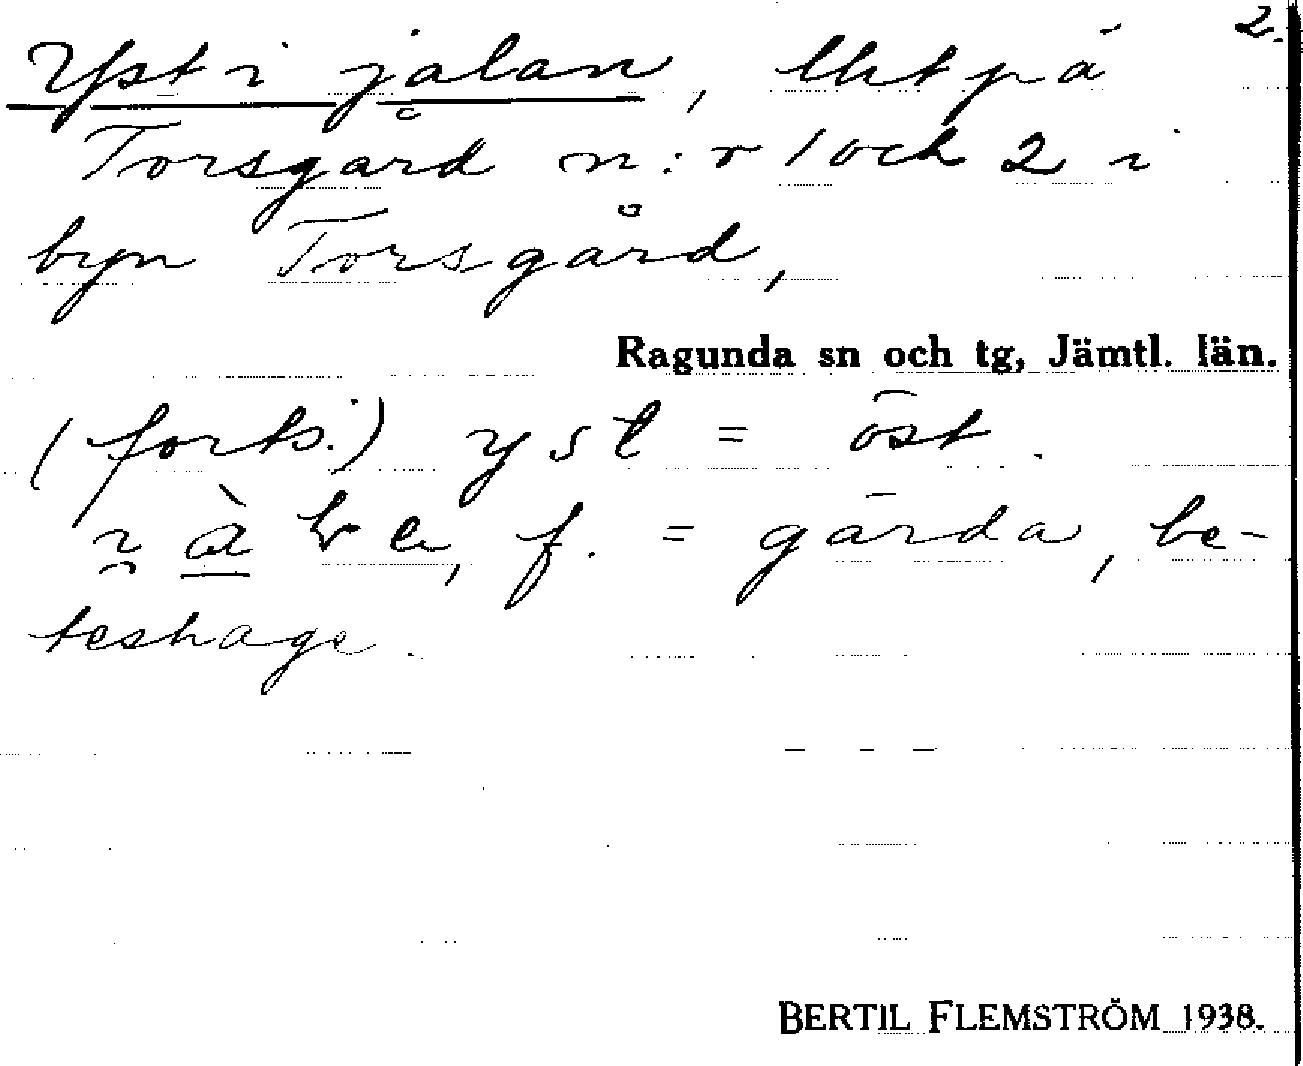 2.
Yst i jalan, litet på
Torsgård n:r 1 och 2 i
byn Torsgård,
Ragunda sn och tg, Jämtl. län.
(forts.) yst = öst.
f. = gärda, be-
teshage.
BERTIL FLEMSTRÖM 1938.